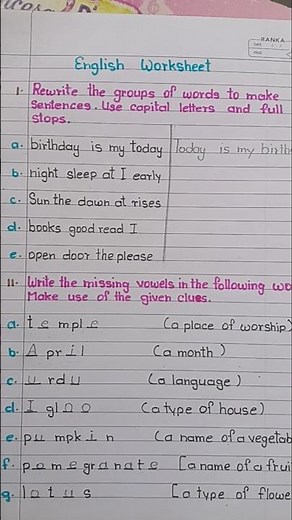 RANKA
English Worksheet
I. Rewrite the groups of words to make
Sentences. Use capital letters and full
stops.
a. birthday is my today Today is my birth
b. night sleep at I early
c. Sun the dawn at rises
d. books good read I
e. open door the please
II. Write the missing vowels in the following wo
Make use of the given clues.
a. temple (a place of worship)
b. April (a month)
c. urdu (a language)
d. Igloo (a type of house)
e. pumpkin (a name of a vegetab
f. pomegranate [a name of a frui
g. lotus [a type of flowe